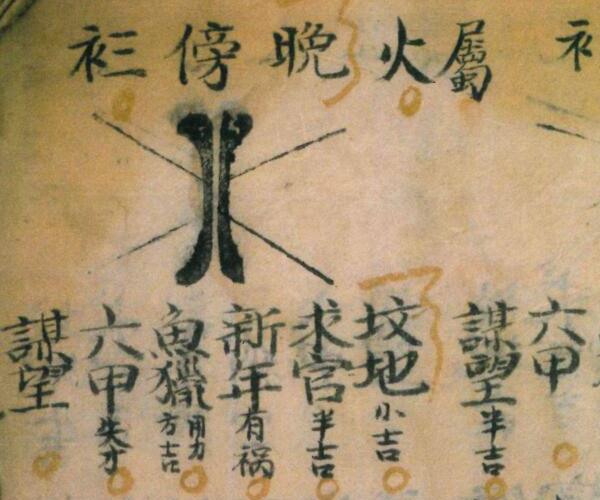 屬火晚傍
六甲
謀望半吉
坟地小吉
求官半吉
新年有祸
魚獵用力方吉
六甲失才
謀望